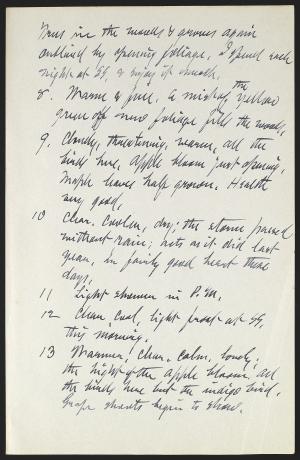 Trees in the woods & groves again
outlined by opening foliage. I spend each
night at SS, & enjoy it much.
8. Warm & fine. A misty the yellow
green of new foliage fills the woods,
9. Cloudy, threatening, warm, all the
birds here, Apple bloom just opening,
Maple leaves half grown. Health
very good.
10 Clear. Cooler, dry; the storm passed
without rain; acts as it did last
year, in fairly good heart these
days,
11 Light shower in P.M.
12 Clear, Cool, light frost at SS,
this morning.
13 Warmer, clear, calm, lovely;
the height of the apple bloom; all
the birds here but the indigo bird.
Grape shoots begin to show.